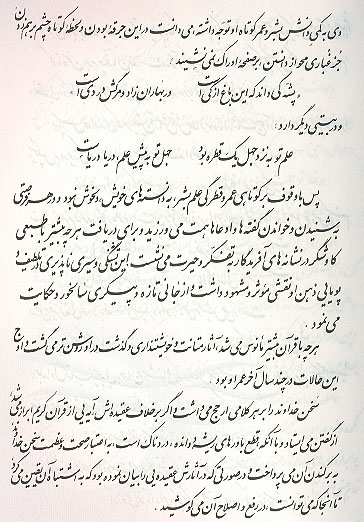 وی به کمی دانش بشر و عمر کوتاه او توجه داشته، می دانست در این حرفه بودن و لحظهٔ کوتاه چشم بر هم زدن
جز غباری محو از دانستن، بر صفحهٔ ادراک نمی نشیند:
پشه کی داند که این باغ از کی است در بهاران زاد و مرگش در دی است
و در بیتی دیگر دارد:
علم تو به نزد جهل یک قطره بود جهل تو به پیش علم، دریا دریاست
پس با وقوف بر کوتاهی عمر و قطرگی علم بشر، به دانسته های خویش دلخوش نبود و در هر فرصتی
به شنیدن و خواندن گفته ها و ادعاها همت می ورزید و برای دریافت هر چه بیشتر طبیعی
کاوشگر در نشانه های آفریدگار به تفکر و حیرت می نشست. این تشنگی و سیری ناپذیری در تلطیف و
پویایی ذهن او نقشی مؤثر و مشهود داشت و از جانی تازه در پیکری سالخورد حکایت
می نمود.
هر چه با قرآن بیشتر مأنوس می شد، آثار متانت و خویشتنداری و گذشت در او روشن تر می گشت و اوج
این حالات در چند سال آخر عمر او بود.
سخن خداوند را بر هر کلامی ارجح می داشت و اگر بر خلاف عقیده اش آیه ایی از قرآن کریم ابراز می شد،
از گفتن می ایستاد و با آنکه قطع باورهای ریشه دوانده، دردناک است، به اعتبار صحت و عظمت سخن خدا،
به برکندن آن می پرداخت و در صورتی که در آثارش عقیده ایی را بیان نموده بود که به اشتباه آن یقین می برد
تا آنجا که می توانست، در رفع و اصلاح آن می کوشید.